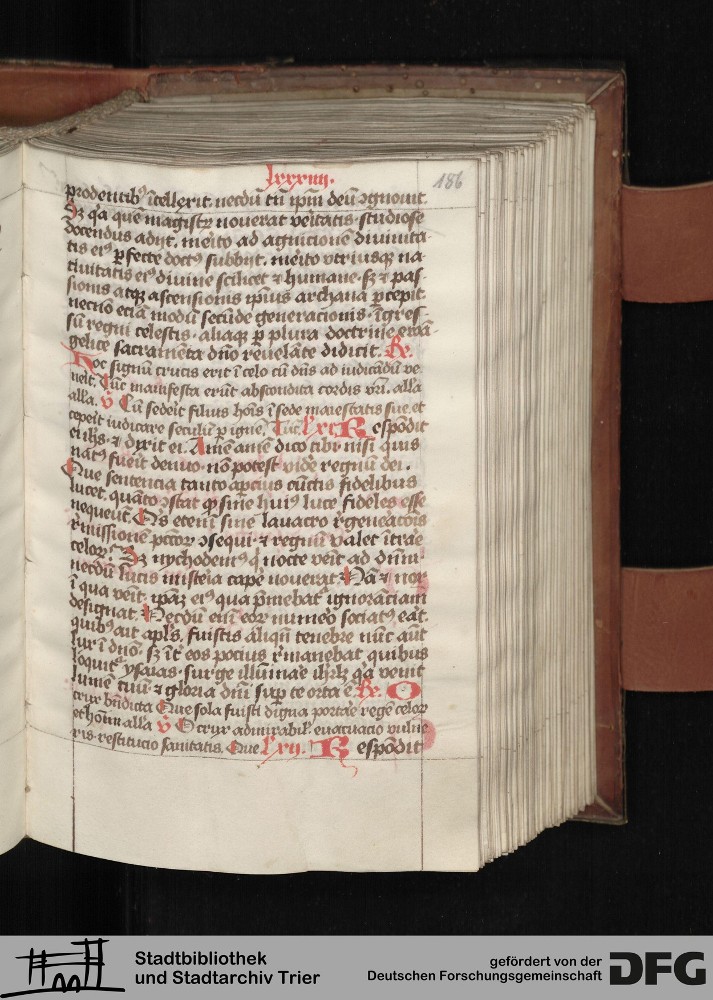 lxxxiiij.
186
prodentibꝰ ītellexit. necdū tn̄ ip̄m deū ꝯgnouit.
Sꝫ q̇a quē magistꝝ nouerat veritatis studiose
docendus adijt. merito ad agnicionē diuinita-
tis eiꝰ ꝑfecte doctꝰ subbijt. merito vtriusqꝫ na
tiuitatis eiꝰ diuine scilicet ⁊ humane. sꝫ ⁊ pas-
sionis atqꝫ ascensionis ip̄ius archana ꝑcepit.
necnō eciā modū secūde generacionis. īgres-
sū regni celestis. aliaqꝫ ꝑ plura doctrine ewā-
gelice sacramēta dn̄o reuelāte didicit. Re.
Hoc signū crucis erit ī celo cū dn̄s ad iudicādū ve
neit. Tūc manifesta erūt abscondita cordis nr̄i. all'a
all'a. v̊ Cū sedeit filius hoīs ī sede maiestatis sue. et
cepeit iudicare seculū ꝑ igne. Tūc. Lxi. Respōdit
ei ihs. ⁊ dixit ei. Amē amē dico tibi nisi quis
natꝰ fueit denuo. nō potest vide regnū dei.
Que sentencia tanto apcius cūctis fidelibus
lucet. quāto ꝯstat qꝫ sine huiꝰ luce fideles esse
nequeūt. Q's etenī sine lauacro r̓geneac̄ois
r̓missionē pctōꝝ ꝯsequi ⁊ regnū valet ītrae
celoꝝ. Sꝫ nychodemꝰ q̇ nocte veīt ad dn̄m.
necdū lucis misteia cape nouerat. Nā ⁊ nox
ī qua veīt. ip̄aꝫ eiꝰ qua p̄mebat̓ ignorāciam
designat. Necdū eni eoꝝ numeo sociatꝰ eāt.
quibꝰ ait apl's. fuistis aliqn̄ tenebre nūc aūt
lux ī dn̄o. sꝫ īt̓ eos pocius r̓manebat quibus
loquit̓ ysaias. surge illūinae ihrl̄ꝫ q̇a venit
lumē tuū. ⁊ gloria dn̄i sup te orta ē. Re. O
crux bn̄dicta Que sola fuisti digna portae regē celoꝝ
et hoīm all'a v̊ O crux admirabil'. euacuacio vulne
ris. restitucio sanitatis. Que Lxij. Respōdit
Stadtbibliothek
und Stadtarchiv Trier
gefördert von der
Deutschen Forschungsgemeinschaft
DFG